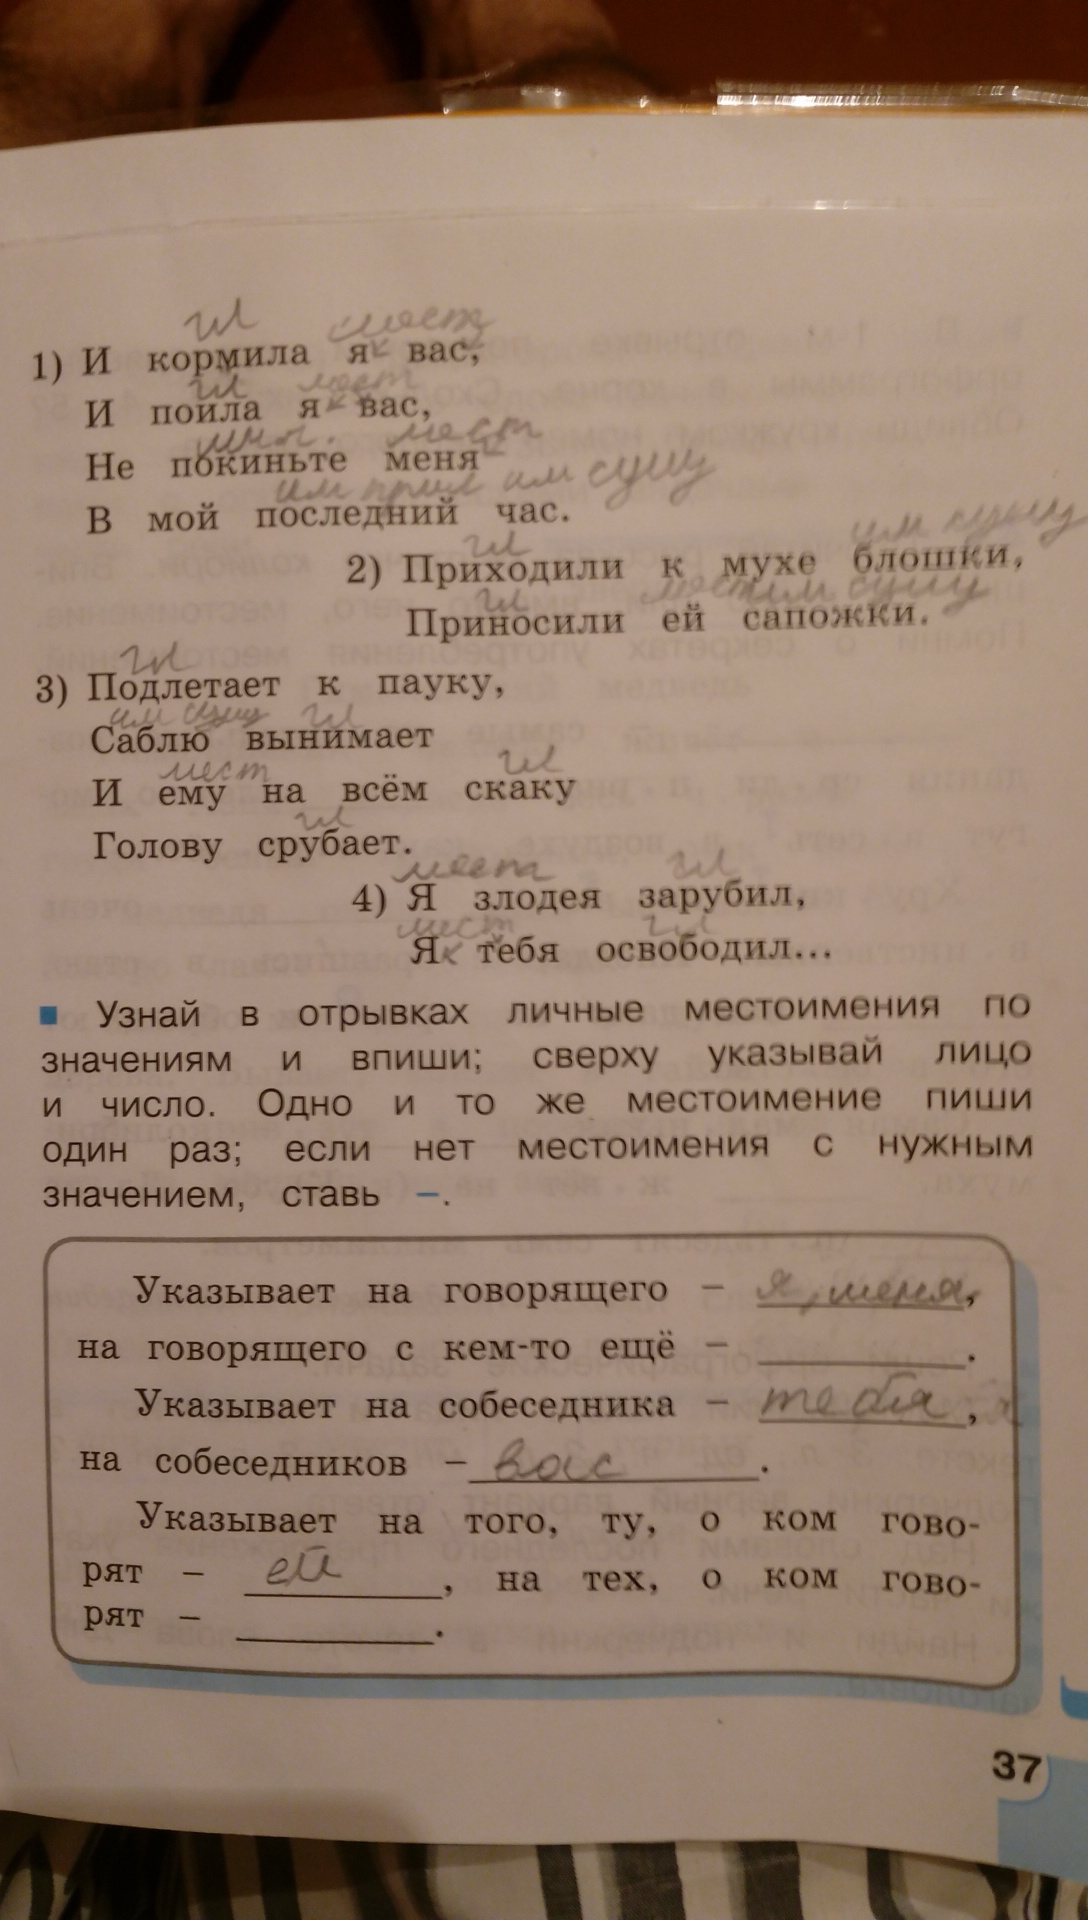 гл мест
1) И кормила я вас,
гл мест
И поила я вас,
мест
Не покиньте меня
им прил им сущ
В мой последний час.
гл им сущ
2) Приходили к мухе блошки,
гл мест им сущ
Приносили ей сапожки.
гл
3) Подлетает к пауку,
им сущ гл
Саблю вынимает
мест гл
И ему на всём скаку
гл
Голову срубает.
мест гл
4) Я злодея зарубил,
мест гл
Я тебя освободил...
Узнай в отрывках личные местоимения по
значениям и впиши; сверху указывай лицо
и число. Одно и то же местоимение пиши
один раз; если нет местоимения с нужным
значением, ставь –.
Указывает на говорящего – я, меня,
на говорящего с кем-то ещё – .
Указывает на собеседника – тебя,
на собеседников – вас.
Указывает на того, ту, о ком гово-
рят – ей, на тех, о ком гово-
рят – .
37